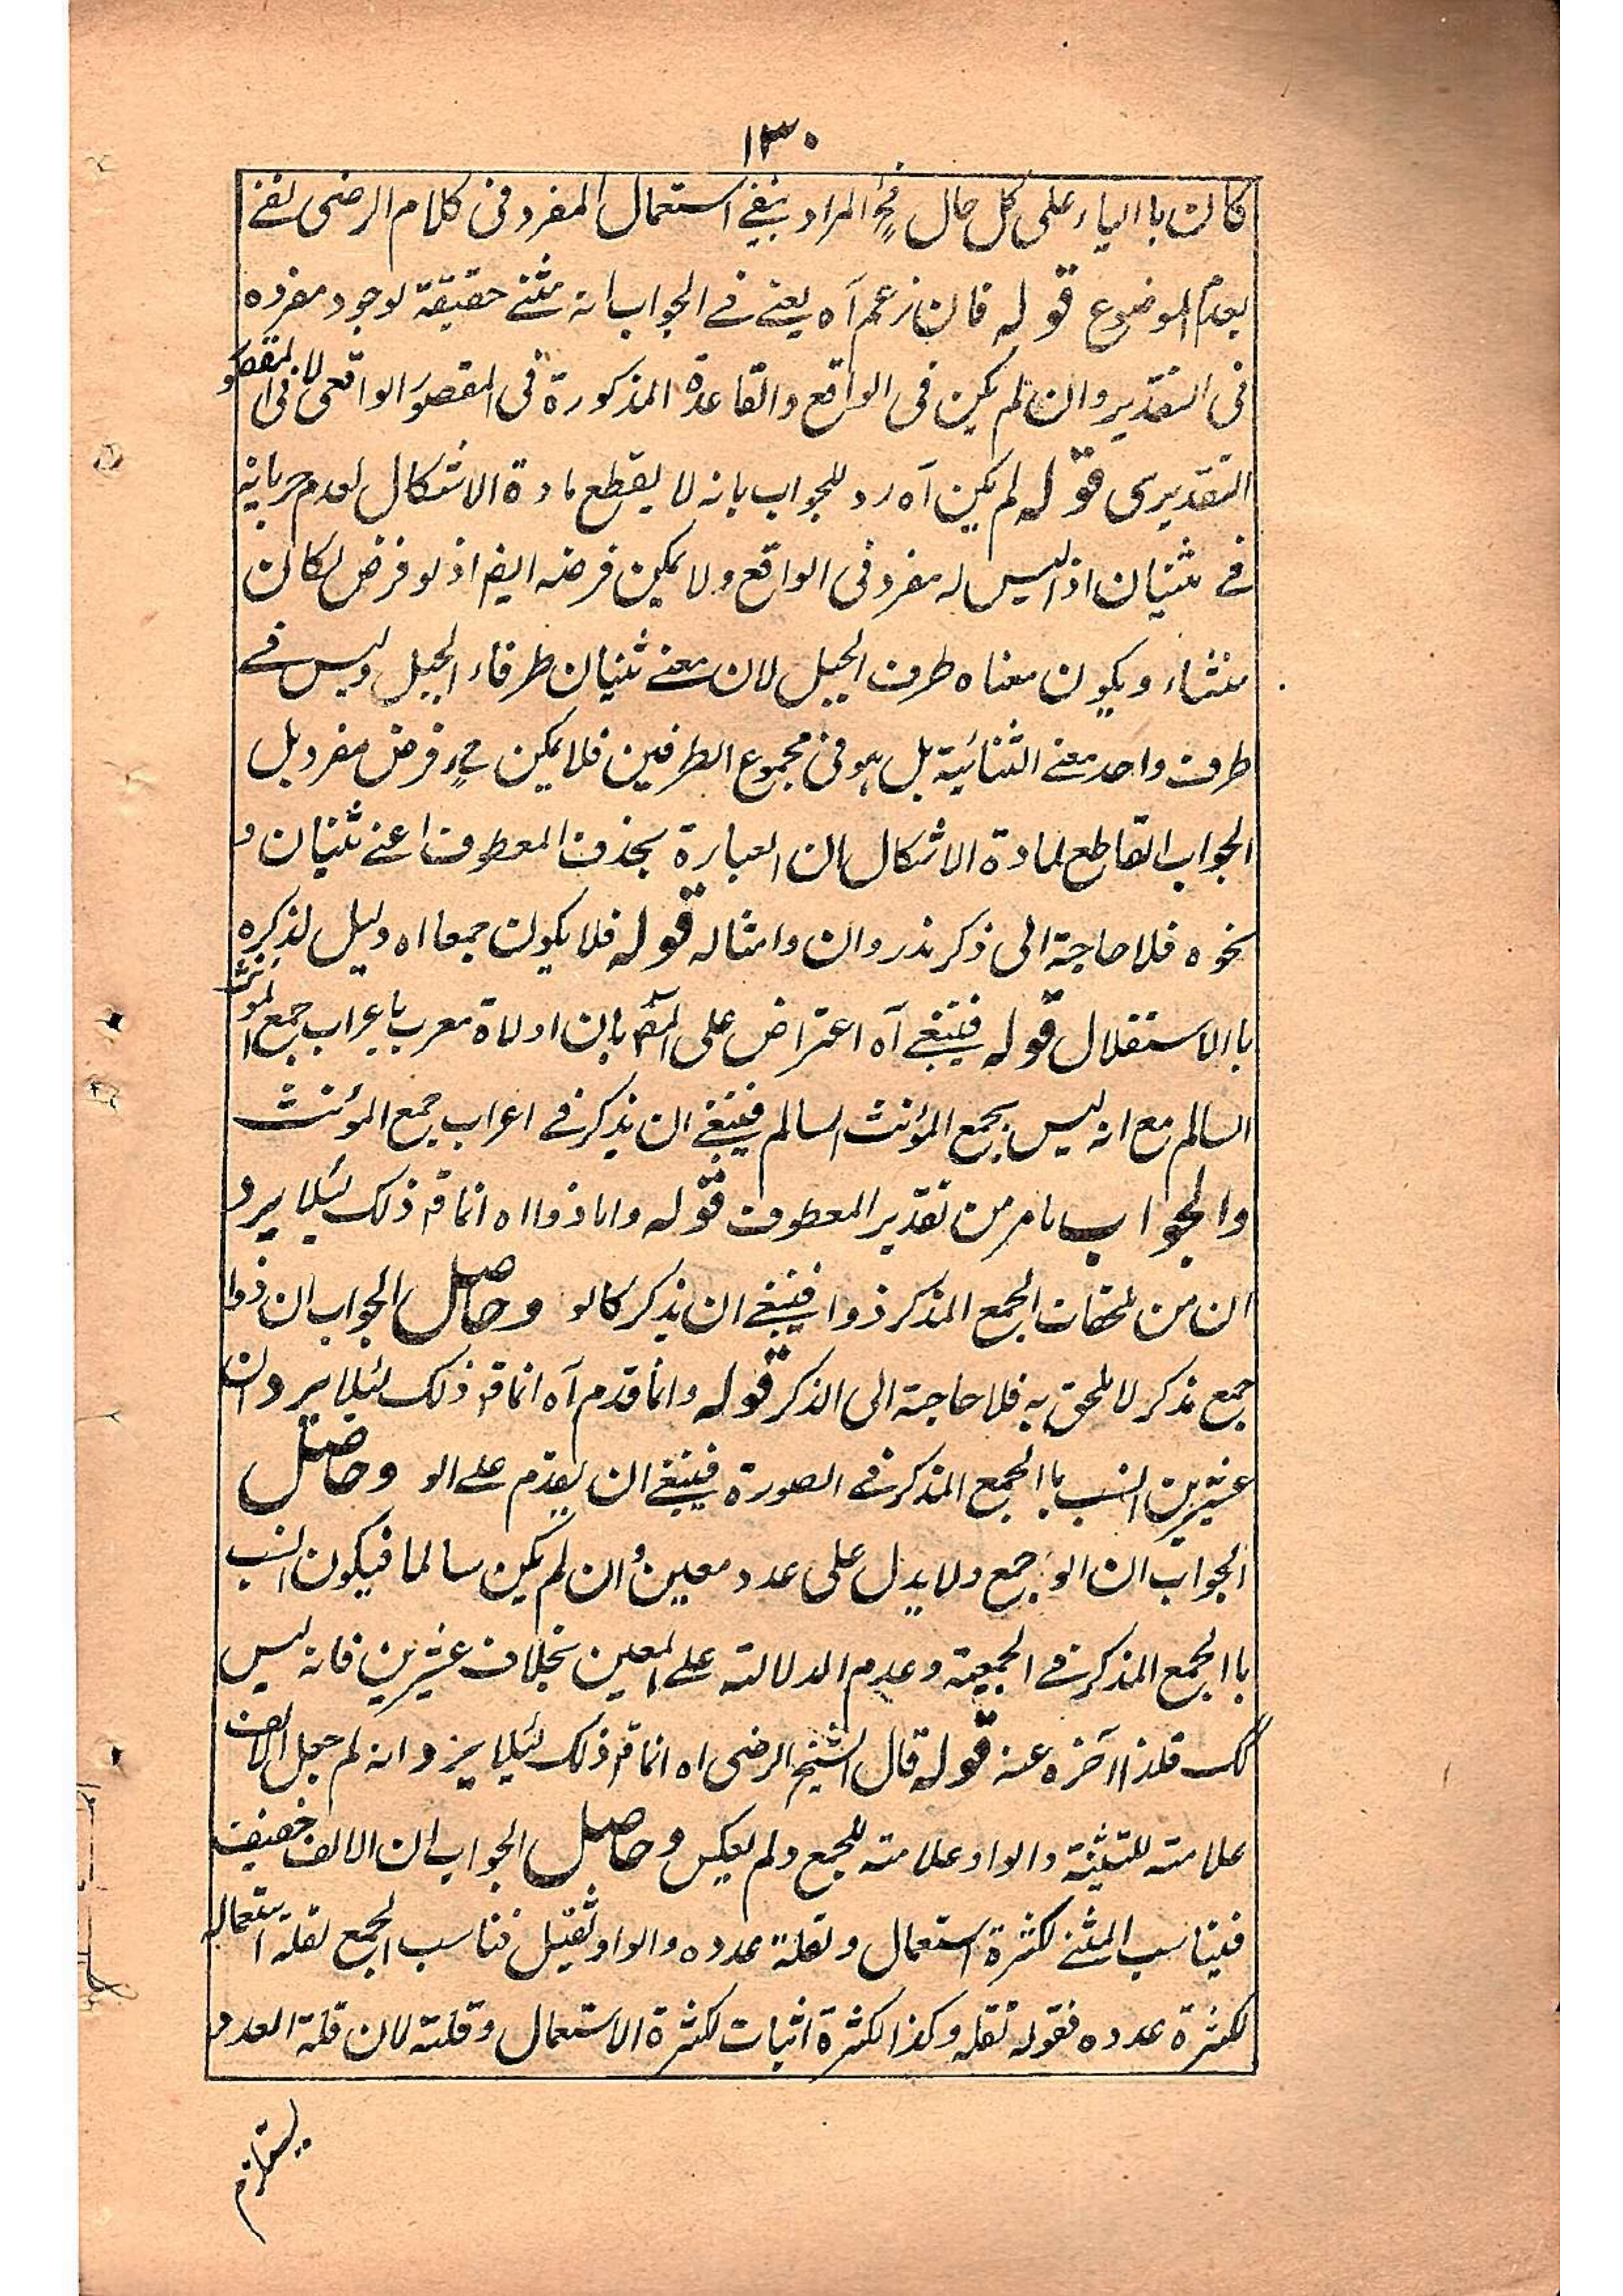 ١٣٠
كان بالياء على كل حال فح المراد بنفي استعمال المفرد في كلام الرضى نفي
بعدم الموضوع قوله فان زعم آه يعني في الجواب انه مثنى حقيقة لوجود مفرده
فى التقدير وان لم يكن فى الواقع والقاعدة المذكورة فى المقصور الواقعى لا فى المقصور
التقديرى قوله لم يكن آه رد للجواب بانه لا يقطع مادة الاشكال لعدم جريانه
في ثنيان اذ ليس له مفرد فى الواقع ولا يمكن فرضه ايضا اذ لو فرض لكان
ثناء ويكون معناه طرف الحبل لان معنى ثنيان طرفاء الحبل وليس في
طرف واحد معنى الثنائية بل هو فى مجموع الطرفين فلا يمكن ح فرض مفرد بل
الجواب القاطع لمادة الاشكال ان العبارة بحذف المعطوف اعني ثنيان و
نحوه فلا حاجة الى ذكر مذروان وامثاله قوله فلا يكون جمعا اه دليل لذكره
باالاستقلال قوله فينبغي آه اعتراض على المص بان اولاة معرب باعراب جمع المؤنث
السالم مع انه ليس بجمع المؤنث السالم فينبغي ان يذكر في اعراب جمع المؤنث
والجواب مامر من تقدير المعطوف قوله واما ذوا اه انما قه ذلك لئلا يرد
ان من ملحقات الجمع المذكر ذوا فينبغي ان يذكر كالو وحاصل الجواب ان ذوا
جمع مذكر لا ملحق به فلا حاجة الى الذكر قوله وانما قدم آه انما قه ذلك لئلا يرد ان
عشرين انسب باالجمع المذكر في الصورة فينبغي ان يقدم على الو وحاصل
الجواب ان الو جمع ولا يدل على عدد معين وان لم يكن سالما فيكون انسب
باالجمع المذكر في الجمعية وعدم الدلالة على المعين بخلاف عشرين فانه ليس
كك فلذا آخره عنه قوله قال الشيخ الرضى اه انما قه ذلك لئلا يرد انه لم جعل الالف
علامة للتثنية والواو علامة للجمع ولم يعكس وحاصل الجواب ان الالف خفيف
فيناسب المثنى لكثرة استعمال وقلة عدده والواو ثقيل فناسب الجمع لقلة استعماله
لكثرة عدده فقوله ثقله وكذا لكثرة اثبات لكثرة الاستعمال وقلته لان قلة العدد
يستلزم